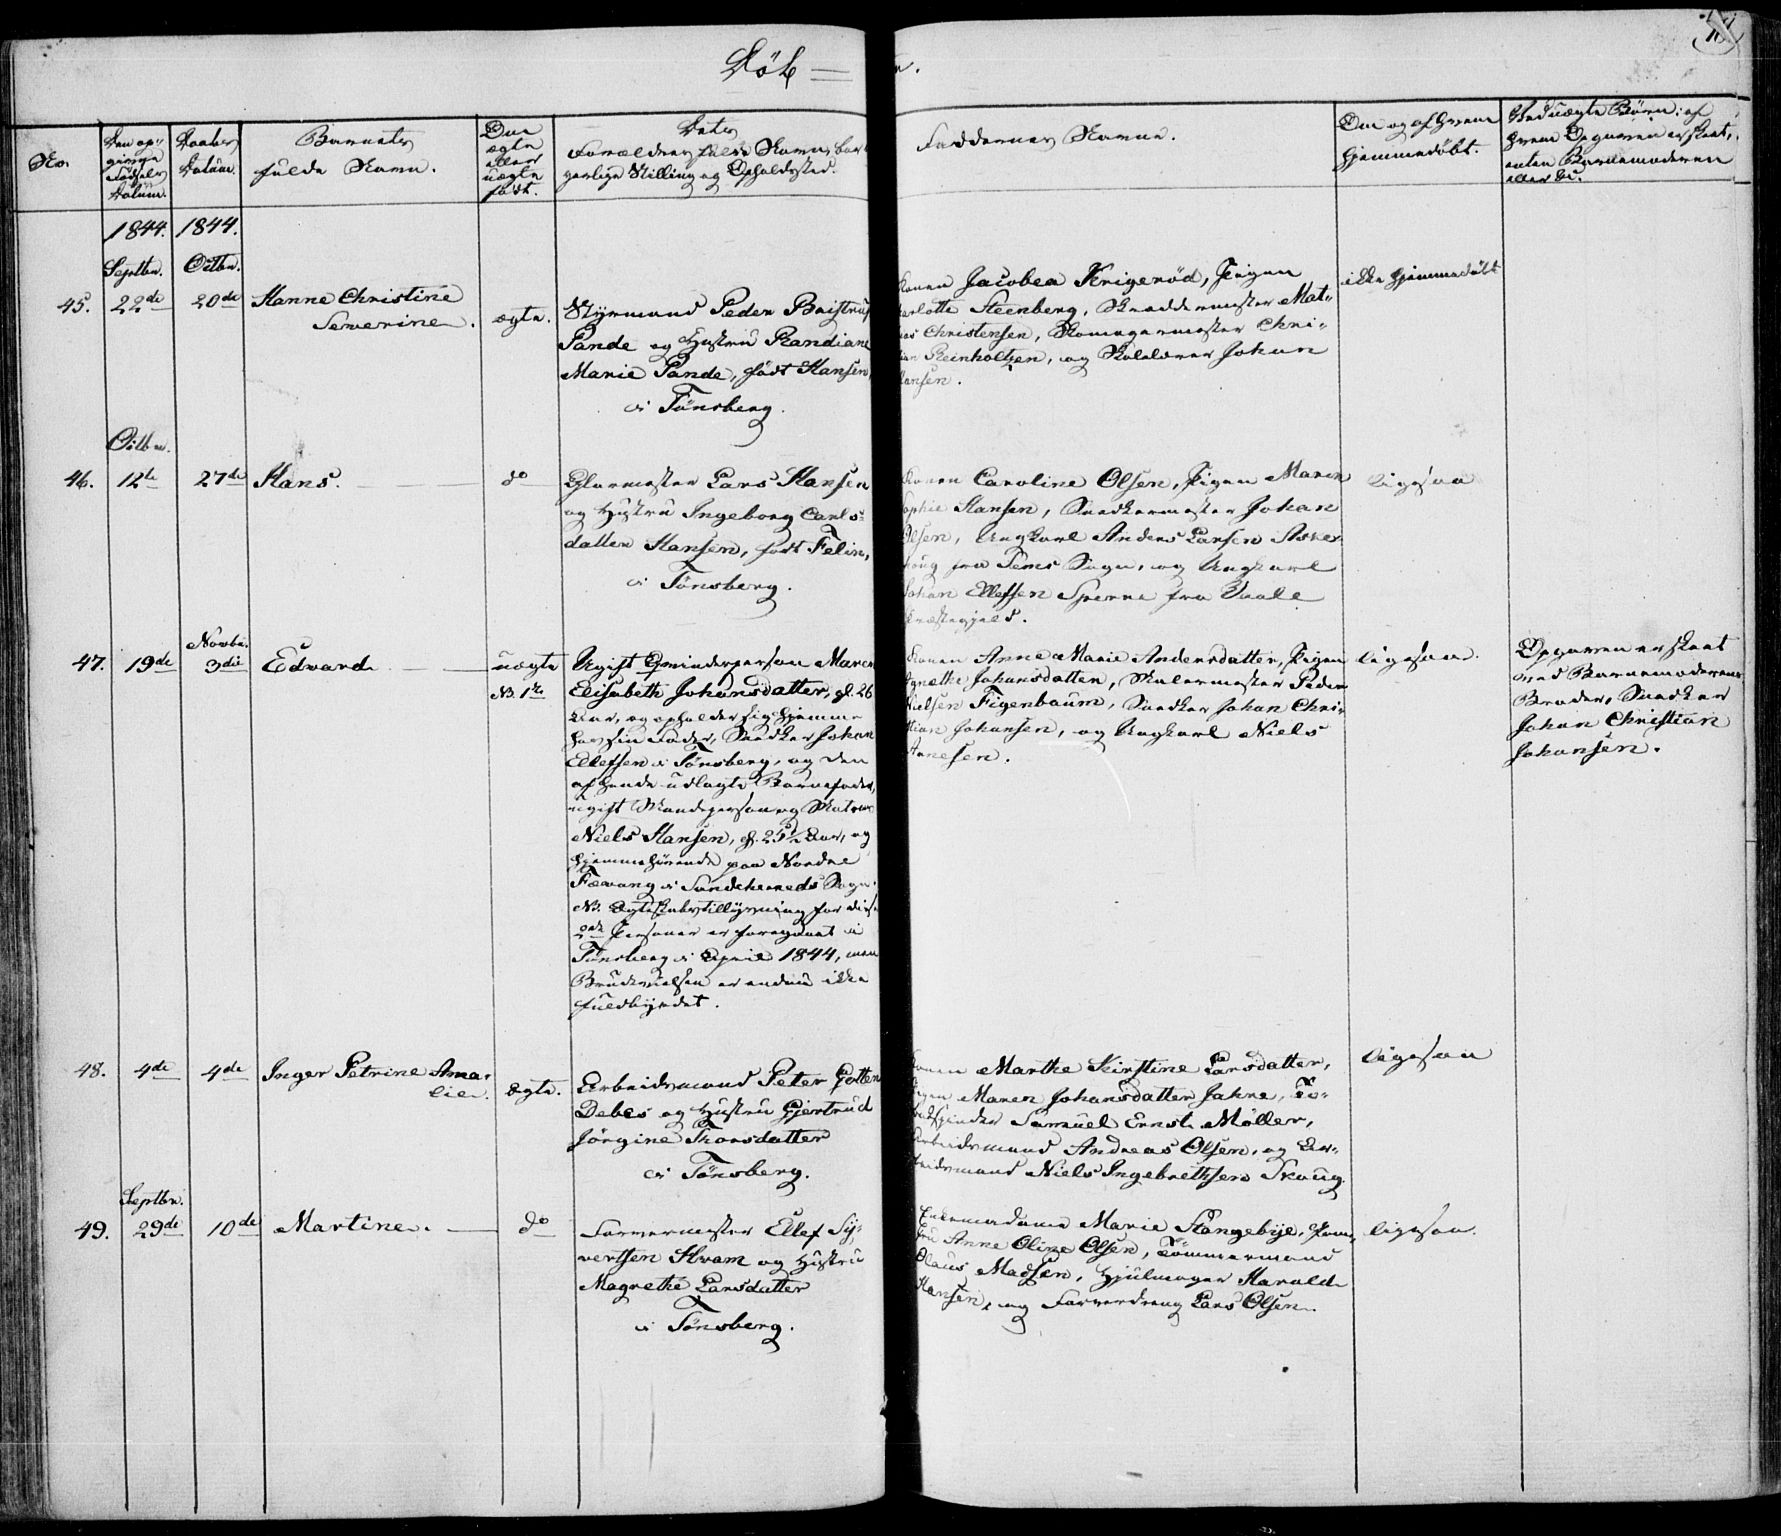 Døb — n.
No.
Den op-
givne
Fødsels
Datum.
Daabs
Datum.
Barnets
fulde Navn.
Om
ægte
eller
uægte
født.
Dets
Forældres fulde Navn, bor-
gerlige Stilling og Opholdssted.
Faddernes Navne.
Om og af Hvem
hjemmedøbt.
Ved uægte Børn: af
hvem Opgaven er skeet,
enten Barnemoderen
eller
1844. 1844.
Septbr. Octbr.
45. 22de 20de Hanne Christine
Severine.
ægte.
Styrmand Peder
Sande og Hustru Randiane
Marie Sande, født Hansen,
i Tønsberg.
Konen Jacobea Krigerød, Pigen
arlotte Steenberg, Skræddermester Mat-
ias Christensen, Skomagermester Chri-
tian Reinholtzen, og Skolelærer Johan
Hansen.
ikke hjemmedøbt
Octbr.
46. 12te 27de Hans. do
Glarmester Lars Hansen
og Hustru Ingeborg Carls-
datter Hansen, født Felin,
i Tønsberg.
Konen Caroline Olsen, Pigen Maren
ophie Hansen, Snedkermester Johan
Olsen, Ungkarl Anders Larsen Aske-
houg fra Sems Sogn, og Ungkarl
Johan Ellefsen Sperre fra Vaale
Præstegjeld.
ligesaa
Novbr.
47. 19de 3die Edvard. uægte
NB. 1te
Ugift Qvindeperson Maren
Elisabeth Johansdatter, gl. 26
Aar, og opholder sig hjemme
hos sin Fader, Snedker Johan
Ellefsen i Tønsberg, og den
af hende udlagte Barnefader,
ugift Mandsperson og Matros
Niels Hansen, gl. 25½ Aar, og
hjemmehørende paa Nordre
Fævang i Sandeherreds Sogn.
NB. Ægteskabstillysning for disse
2de Personer er foregaaet i
Tønsberg i April 1844, men
Brudevielsen er endnu ikke
fuldbyrdet.
Konen Anne Marie Andersdatter, Pigen
Agnethe Johansdatter, Malermester Peder
Nielsen Figenbaum, Snedker Johan Chri-
stian Johansen, og Ungkarl Niels
Arnesen.
ligesaa.
Opgaven er skeet
ved Barnemoderens
Broder, Snedker
Johan Christian
Johansen.
48. 4de 4de Inger Petrine Ama-
lie.
ægte.
Arbeidsmand Peter Gotten
Debes og Hustru Gjertrud
Jørgine Thorsdatter
i Tønsberg.
Konen Marthe Kirstine Larsdatter,
Pigen Maren Johansdatter Jahre, To-
bakspinder Samuel Ernst Møller,
Arbeidsmand Andreas Olsen, og Ar-
beidsmand Niels Ingebrethsen Skoug.
ligesaa
Septbr.
49. 29de 10de Martine. do
Farvermester Ellef Sy-
vertsen Hvam og Hustru
Magrethe Larsdatter
i Tønsberg.
Enkemadame Marie Stangebye, Jom-
fru Anne Oline Olsen, Tømmermand
Olaus Madsen, Hjulmager Harald
Hansen, og Farverdreng Lars Olsen.
ligesaa.